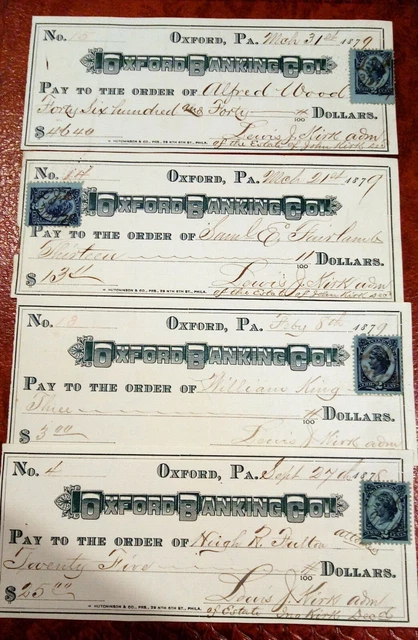 No. 15 Oxford, Pa. Mch 31st 1879
Oxford Banking Co.
Pay to the order of Alfred Wood
Forty Six hundred and Forty /100 Dollars.
$4640 Lewis J. Kirk adm
of the Estate of John Kirk dec
H. HUTCHINSON & CO., PRS., 29 NTH 5TH ST., PHILA.
No. 14 Oxford, Pa. Mch 21st 1879
Oxford Banking Co.
Pay to the order of Saml E. Fairlamb
Thirteen 11 Dollars.
$13 11 Lewis J. Kirk adm
H. HUTCHINSON & CO., PRS., 29 NTH 5TH ST., PHILA.
of the Estate of John Kirk Dec
No. 13 Oxford, Pa. Feby 8th 1879
Oxford Banking Co.
Pay to the order of William King
Three /100 Dollars.
$3.00 Lewis J. Kirk adm
No. 4 Oxford, Pa. Sept 27th 1878
Oxford Banking Co.
Pay to the order of Hugh R. Fulton
Twenty Five /100 Dollars.
$25.00 Lewis J. Kirk adm
H. HUTCHINSON & CO., PRS., 29 NTH 5TH ST., PHILA.
of Estate Jno Kirk Decd